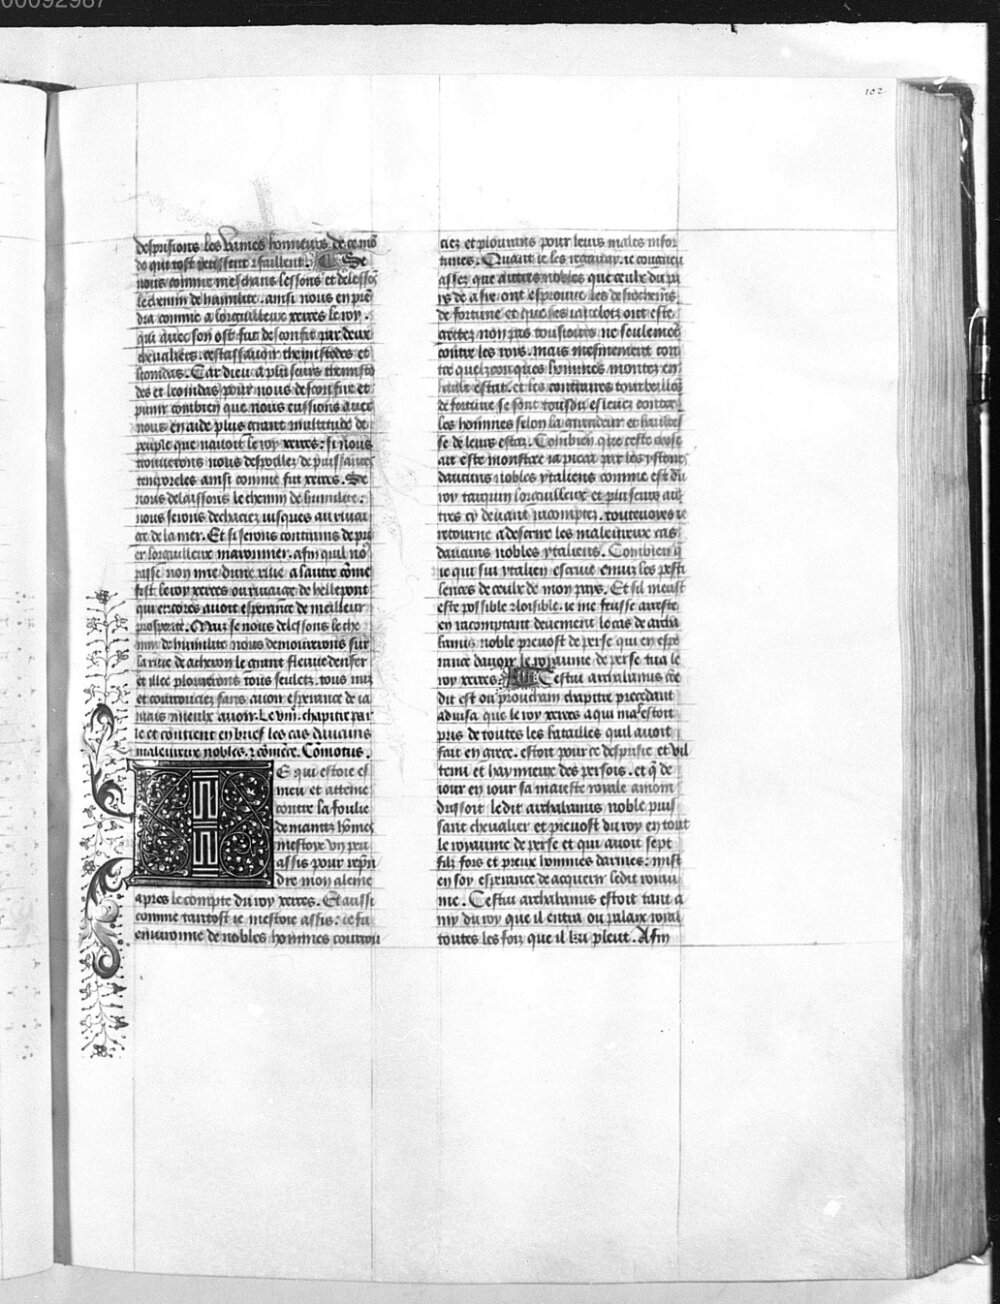 00092987
102
desprisions les vaines honneurs de ce mō
de qui tost perissent ⁊ faillent. Se
nous comme meschans lessons et delessōs
le chemin de humilite. ainsi nous en prē
dra comme a lorgueilleux xerxes le roy.
qui avec son ost fut desconfit par deux
chevaliers. cestassavoir themistodes et
leonidas. Car dieu a plusieurs themisto
des et leonidas pour nous desconfire et
punir combien que nous eussions avec
nous en aide plus grant multitude de
peuple que navoit le roy xerxes: si nous
trouverons nous despoillez de puissances
temporeles ainsi comme fut xerxes. Se
nous delaissons le chemin de humilite.
nous serons dechaciez jusques au rivai
ge de la mer. Et si serons contrains de pri
er lorgueilleux maronnier. afin quil no9
passe non mie dune rive a lautre cōme
fist le roy xerxes ou rivaige de hellepont
qui encores avoit esperance de meilleur
prosperite. Mais se nous delessons le che
min de humilite nous demourrons sur
la rive de acheron le grant fleuve denfer
et illec plorerons tous seulez. tous nuz
et courrouciez sans avoir esperance de ia
mais mieulx avoir. Le viii. chapitre par
le et contient en brief les cas daucuns
maleureux nobles. ⁊ cōmēce. Cōmotus.
E qui estoie es
meu et atteine
contre la foulie
de maintz hōmes
mestoye un peu
assis pour repri
dre mon aleine
apres le compte du roy xerxes. Et aussi
comme tantost ie mestoie assis: ie fu
environne de nobles hommes courrou
ciez et plourans pour leurs males infor
tunes. Quant ie les regarday. ie congneu
assez que autres nobles que ceulx du pa
ys de asie ont esprouve les desrocheīns
de fortune et que ses iavelotz ont este
gettez non pas tousiours ne seulement
contre les roys. mais mesmement con
tre quelzconques hommes montez en
hault estat. et les contraires tourbeillōs
de fortune se sont tousdis eslevez contre
les hommes selon la grandeur et haultes
se de leurs estaz. Combien que ceste chose
ait este monstree ia pieca par les ystoires
daucuns nobles ytaliens comme est du
roy tarquin lorgueilleux et plusieurs au
tres cy devant racomptez. toutevoies ie
retourne a descrire les maleureux cas
daucuns nobles ytaliens. Combien q̄
ie qui sui ytalien escrive envis les pesti
lences de ceulx de mon pays. Et sil meust
este possible ⁊ loisible. ie me feusse arreste
en racomptant deuement le cas de artha
banus noble prevost de perse qui en espe
rance davoir le royaume de perse tua le
roy xerxes. Cestui arthabanus cōe
dit est ou prouchain chapitre precedant
advisa que le roy xerxes a qui mal estoit
pris de toutes les batailles quil avoit
fait en grece. estoit pour ce desprise et vil
tenu et haynneux des persois. et q̄ de
iour en iour sa maieste royale amoin
drissoit ledit arthabanus noble puis
sant chevalier et prevost du roy en tout
le royaume de perse et qui avoit sept
filz fors et preux hommes darmes: mist
en soy esperance de acquerir ledit royau
me. Cestui arthabanus estoit tant a
my du roy que il entra ou palaix royal
toutes les foiz que il lui pleut. Afin